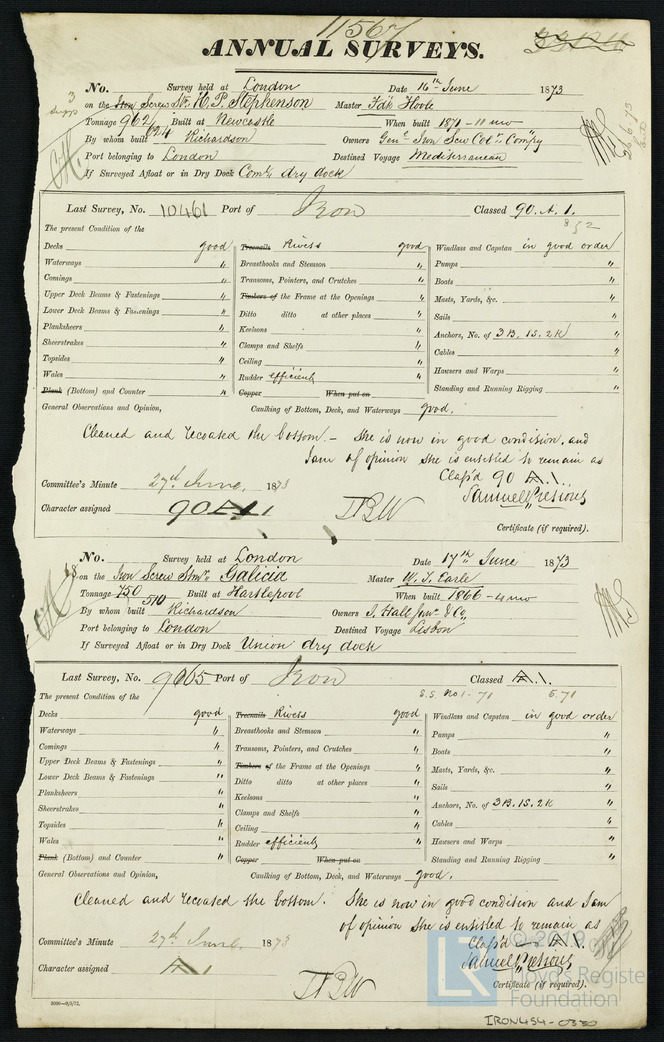 11567
ANNUAL SURVEYS.
No. Survey held at London Date 16th June 1873
on the Iron Screw Str. H. P. Stephenson Master Fdk Hoole
Tonnage 962/624 Built at Newcastle When built 1871 - 11 mo
By whom built Richardson Owners Genl. Iron Scw Colr. Compy
Port belonging to London Destined Voyage Mediterranean
If Surveyed Afloat or in Dry Dock Coml. dry dock
Last Survey, No. 10461 Port of Iron Classed 90. A. 1.
The present Condition of the
Decks good Treenails Rivets good Windlass and Capstan in good order
Waterways " Breasthooks and Stemson " Pumps "
Comings " Transoms, Pointers, and Crutches " Boats "
Upper Deck Beams & Fastenings " Timbers of the Frame at the Openings " Masts, Yards, &c. "
Lower Deck Beams & Fastenings " Ditto ditto at other places " Sails "
Planksheers " Keelsons " Anchors, No. of 3B. 1S. 2K "
Sheerstrakes " Clamps and Shelfs " Cables "
Topsides " Ceiling " Hawsers and Warps "
Wales " Rudder efficient Standing and Running Rigging "
Plank (Bottom) and Counter " Copper When put on
General Observations and Opinion, Caulking of Bottom, Deck, and Waterways good.
Cleaned and recoated the bottom. - She is now in good condition, and
I am of opinion she is entitled to remain as
Class'd 90 A.1.
Committee's Minute 27th June, 1873
Samuel Presious
Character assigned 90 A 1
Certificate (if required).
No. Survey held at London Date 17th June 1873
on the Iron Screw Stmr. Galicia Master W. T. Earle
Tonnage 750/510 Built at Hartlepool When built 1866 - 4 mo
By whom built Richardson Owners J. Hall Junr. & Co
Port belonging to London Destined Voyage Lisbon
If Surveyed Afloat or in Dry Dock Union dry dock
Last Survey, No. 9665 Port of Iron Classed A.1.
S.S. No 1 - 71 5.71
The present Condition of the
Decks good Treenails Rivets good Windlass and Capstan in good order
Waterways " Breasthooks and Stemson " Pumps "
Comings " Transoms, Pointers, and Crutches " Boats "
Upper Deck Beams & Fastenings " Timbers of the Frame at the Openings " Masts, Yards, &c. "
Lower Deck Beams & Fastenings " Ditto ditto at other places " Sails "
Planksheers " Keelsons " Anchors, No. of 3B. 1S. 2K "
Sheerstrakes " Clamps and Shelfs " Cables "
Topsides " Ceiling " Hawsers and Warps "
Wales " Rudder efficient Standing and Running Rigging "
Plank (Bottom) and Counter " Copper When put on
General Observations and Opinion, Caulking of Bottom, Deck, and Waterways good.
Cleaned and recoated the bottom. She is now in good condition and I am
of opinion she is entitled to remain as
Class'd A.1.
Committee's Minute 27th June 1873
Samuel Presious
Character assigned A 1
Certificate (if required).
© 2019
Lloyd's Register
Foundation
5000-9/5/72.
IRON454-0330